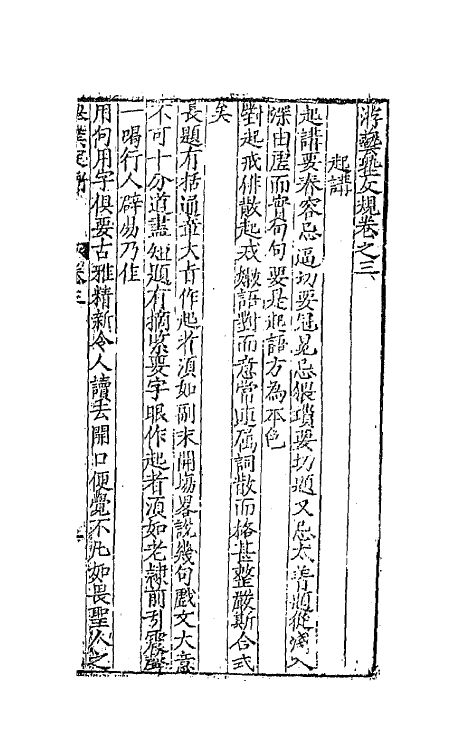 游藝塾文規卷之三
起講
起講要舂容忌逼切要冠冕忌猥瑣要切題又忌太着題從淺入
深由虛而實句句要是起語方為本色
對起戒俳散起戒嫩語對而意常連屬詞散而格甚整嚴斯合式
矣
長題有括通章大旨作起者須如副末開場畧說幾句戲文大意
不可十分道盡短題有摘緊要字眼作起者須如老隸前引震聲
一喝行人辟易乃佳
用句用字俱要古雅精新令人讀去開口便覺不凡如畏聖人之
卷三